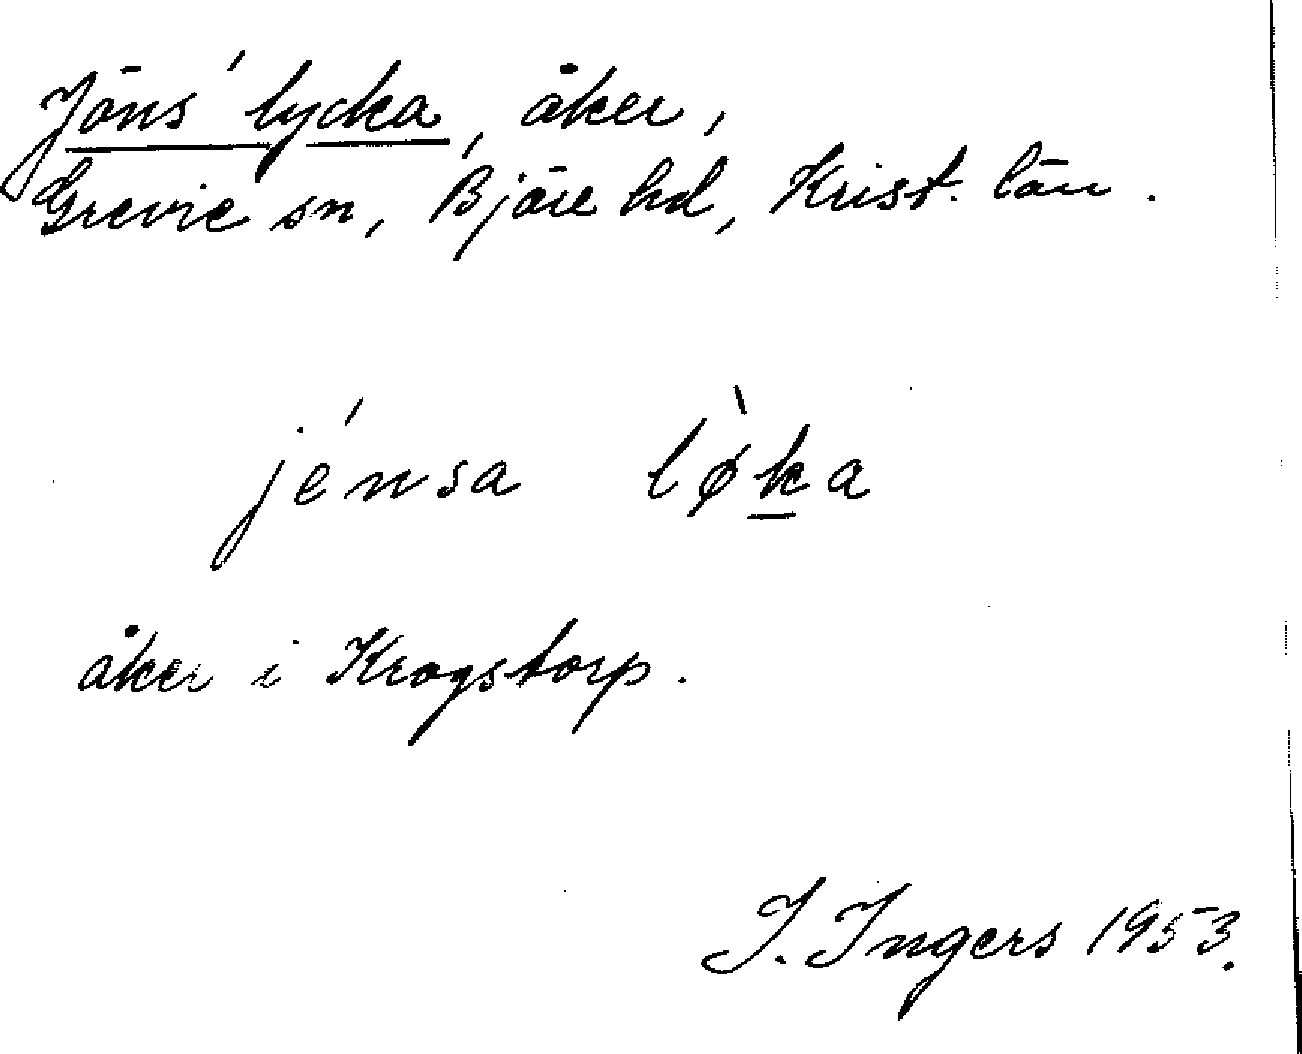 Jöns' lycka, åker,
Grevie sn, Bjäre hd, Krist. län.
jénsa lø̀ka
åker i Krogstorp.
I. Ingers 1953.